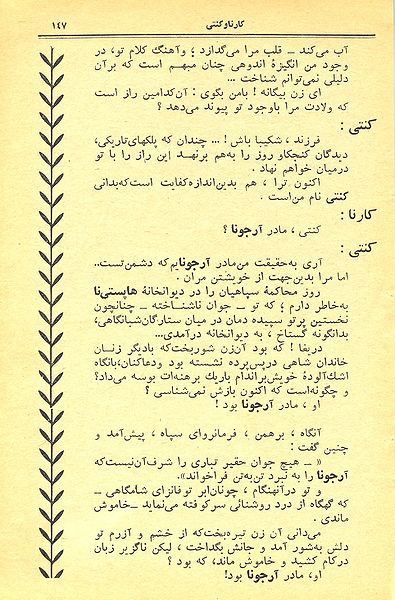 کارناوکنتی
۱۴۷
آب می‌کند ـ قلب مرا می‌گدازد ؛ وآهنگ کلام تو، در
وجود من انگیزهٔ اندوهی چنان مبهم است که برآن
دلیلی نمی‌توانم شناخت ...
ای زن بیگانه ! بامن بگوی : آن‌کدامین راز است
که ولادت مرا باوجود تو پیوند می‌دهد ؟
کنتی :
فرزند ، شکیبا باش !... چندان که پلکهای‌تاریکی،
دیدگان کنجکار روز را به‌هم برنهد این راز را با تو
درمیان خواهم نهاد .
اکنون ترا ، هم بدین‌اندازه‌کفایت است‌که‌بدانی
کنتی نام من‌است .
کارنا :
کنتی ، مادر آرجونا ؟
کنتی :
آری به‌حقیقت من‌مادر آرجونایم‌که دشمن‌تست..
اما مرا بدین‌جهت از خویشتن مران .
روز محاکمهٔ سپاهیان را در دیوانخانهٔ هایستی‌نا
به‌خاطر دارم ؛ که تو ـ جوان ناشناخته ـ چنانچون
نخستین پرتو سپیده دمان در میان ستارگان‌شبانگاهی،
بدانگونه گستاخ ، به دیوانخانه درآمدی...
دریغا ! که بود آن‌زن شوربخت‌که بادیگر زنان
خاندان شاهی درپس‌پرده نشسته بود ودعاکنان،بانگاه
اشك‌آلودهٔ خویش‌براندام باریك برهنه‌ات بوسه می‌داد؟
و چگونه‌است که اکنون بازش نمی‌شناسی ؟
او ، مادر آرجونا بود !
آنگاه ، برهمن ، فرمانروای سپاه ، پیش‌آمد و
چنین گفت :
« ـ هیچ جوان حقیر تباری را شرف‌آن‌نیست‌که
آرجونا را به نبرد تن‌به‌تن فراخواند».
و تو درآنهنگام ، چونان‌ابر توفانزای شامگاهی ـ
که گهگاه از درد روشنائی سرکوفته می‌نماید ـ‌خاموش
ماندی .
می‌دانی آن زن تیره‌بخت‌که از خشم و آزرم تو
دلش به‌شور آمد و جانش بگداخت ، لیکن ناگزیر زبان
درکام کشید و خاموش ماند، که بود ؟
او، مادر آرجونا بود!